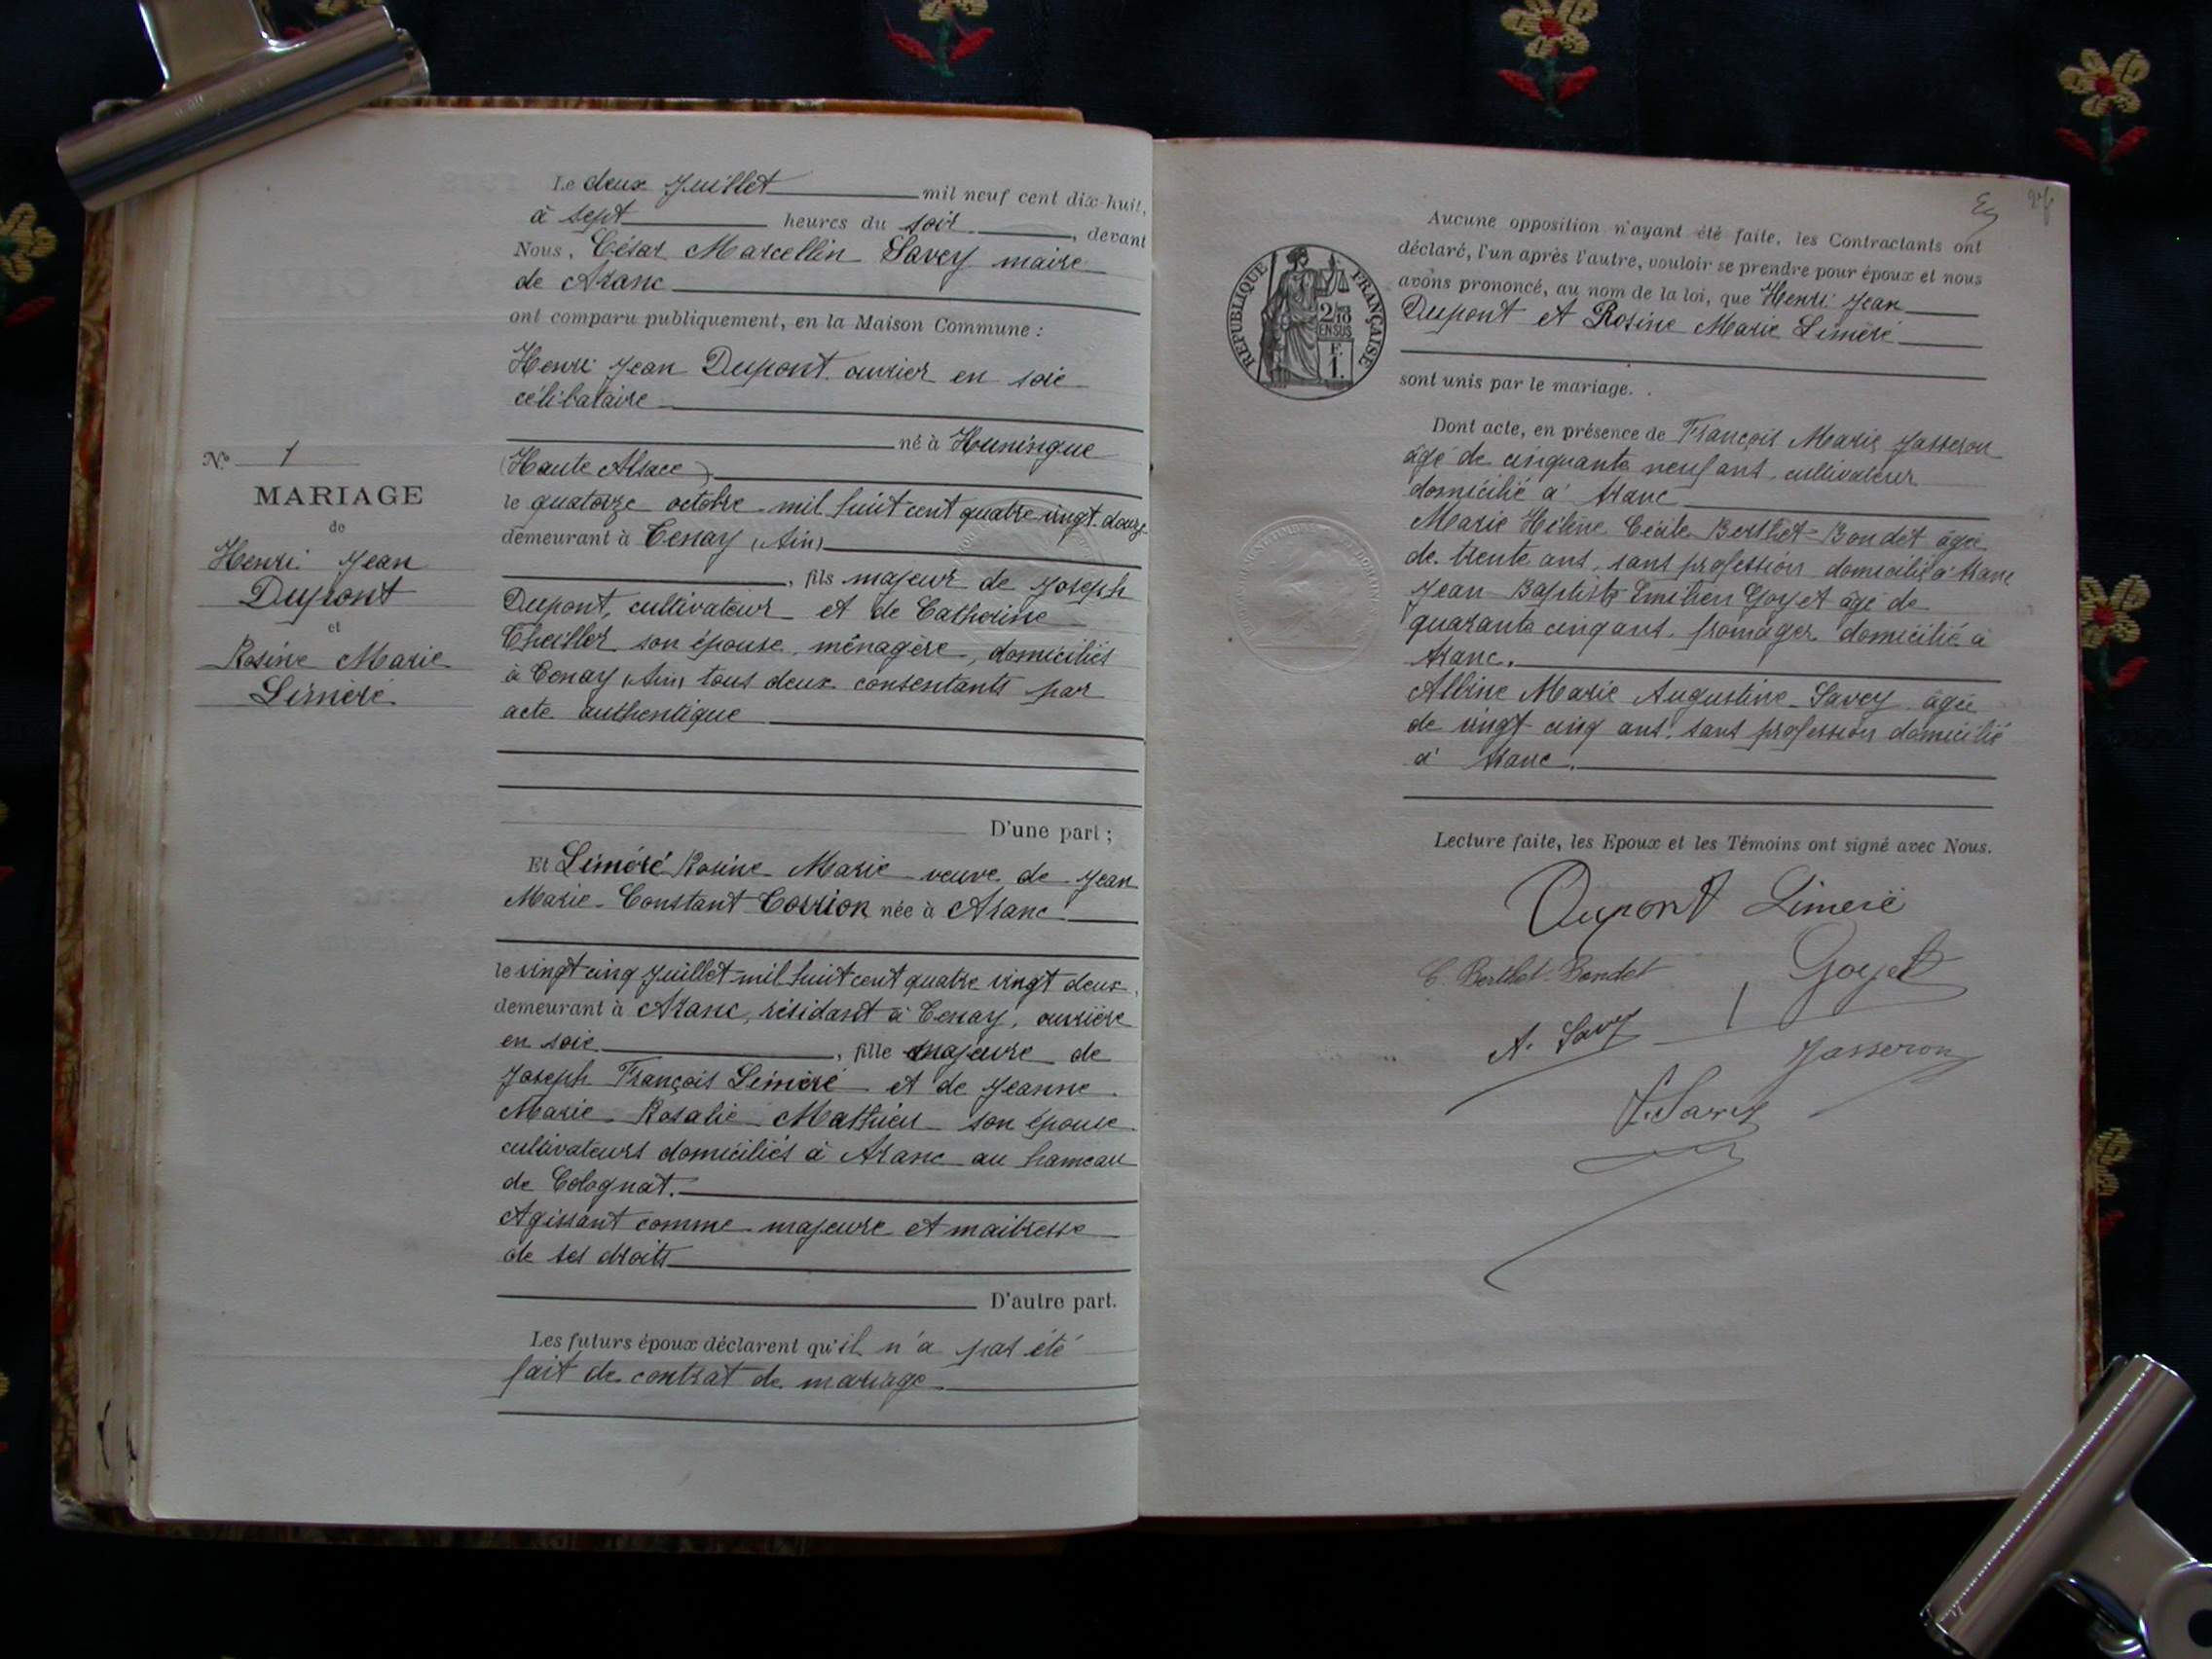 Le deux Juillet mil neuf cent dix-huit,
à sept heures du soir, devant
Nous, César Marcellin Savey maire
de Aranc
ont comparu publiquement, en la Maison Commune :
Henri Jean Dupont ouvrier en soie
célibataire
né à Huningue
(Haute Alsace)
le quatorze octobre mil huit cent quatre vingt douze
demeurant à Tenay (Ain)
, fils majeur de Joseph
Dupont, cultivateur et de Catherine
son épouse, ménagère, domiciliés
à Tenay (Ain) tous deux consentants par
acte authentique
D'une part ;
Nº 1
MARIAGE
de
Henri Jean
Dupont
et
Rosine Marie
Liméré
Et Liméré Rosine Marie veuve de Jean
Marie Constant née à Aranc
le vingt cinq Juillet mil huit cent quatre vingt deux,
demeurant à Aranc, résidant à Tenay, ouvrière
en soie, fille majeure de
Joseph François Liméré et de Jeanne
Marie Rosalie Mathieu son épouse
cultivateurs domiciliés à Aranc au hameau
de Colognat.
Agissant comme majeure et maitresse
de ses droits
D'autre part.
Les futurs époux déclarent qu'il n'a pas été
fait de contrat de mariage
Aucune opposition n'ayant été faite, les Contractants ont
déclaré, l'un après l'autre, vouloir se prendre pour époux et nous
avons prononcé, au nom de la loi, que Henri Jean
Dupont et Rosine Marie Liméré
sont unis par le mariage.
RÉPUBLIQUE FRANÇAISE
2/10
EN SUS
F.
1.
Dont acte, en présence de François Marie Jasseron
âgé de cinquante neuf ans, cultivateur
domicilié à Aranc
Marie Hélène Cécile Berthet-Bondet âgée
de trente ans, sans profession domicilié à Aranc
Jean Baptiste Emilien Goyet âgé de
quarante cinq ans, fromager domicilié à
Aranc.
Albine Marie Augustine Savey âgée
de vingt cinq ans, sans profession domicilié
à Aranc.
Lecture faite, les Epoux et les Témoins ont signé avec Nous.
Dupont Limeré
C. Berthet-Bondet Goyet
A. Savey Jasseron
Savey